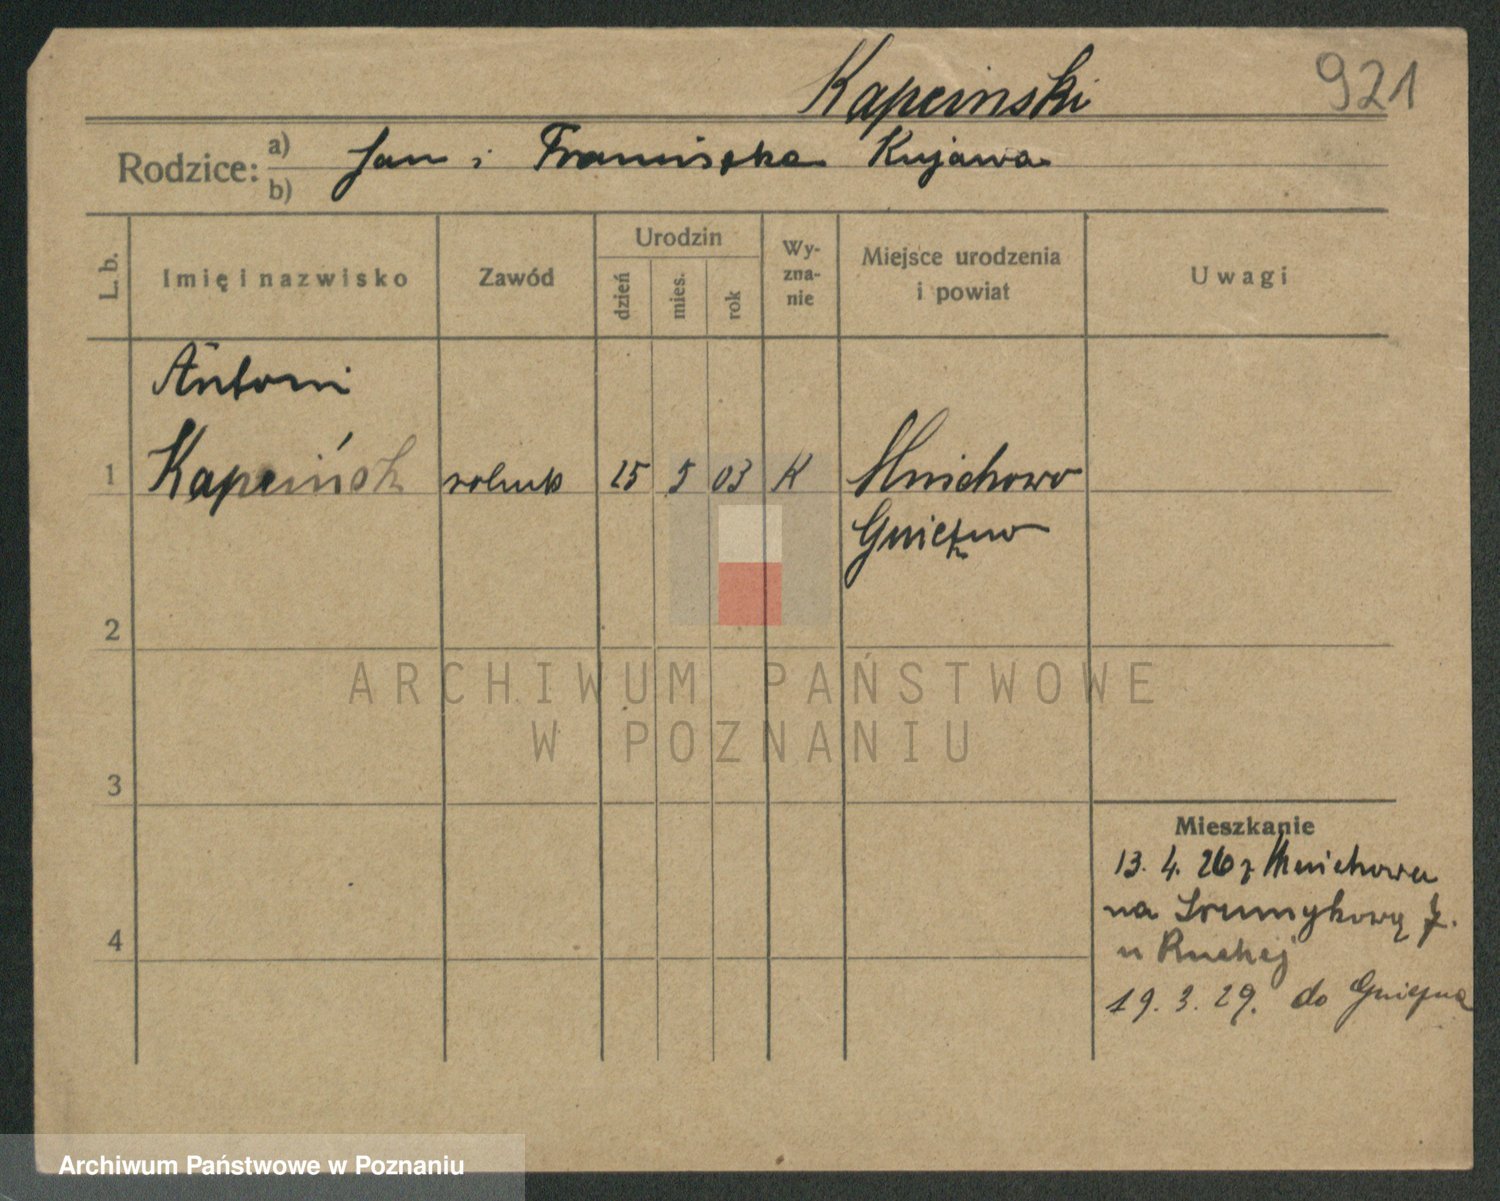 Kapeinski 921
Rodzice: a) Jan i Franciszka Kujawa
b)
L. b. Imię i nazwisko Zawód Urodzin dzień mies. rok Wy-zna-nie Miejsce urodzenia i powiat Uwagi
Antoni
1 Kapeińsk rolnik 25 5 03 K Mnichowo
Gniezno
2
ARCHIWUM PAŃSTWOWE
W POZNANIU
3
Mieszkanie
13. 4. 26 z Mnichowa
na
4 u
19. 3. 29. do Gniezna
Archiwum Państwowe w Poznaniu